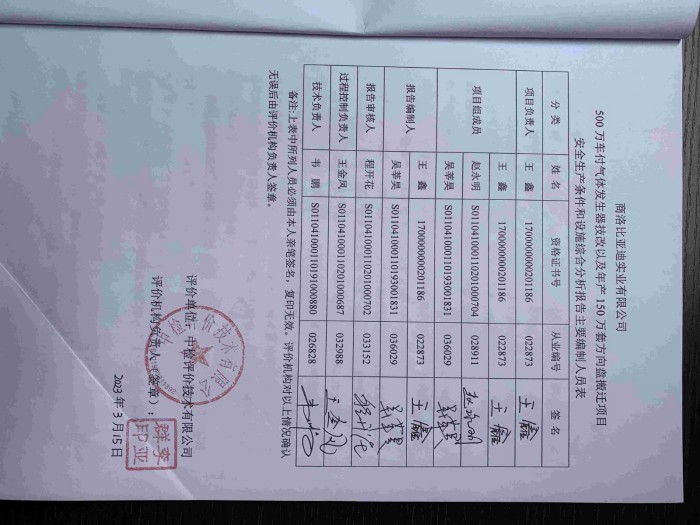 商洛比亚迪实业有限公司
500 万车付气体发生器技改以及年产 150 万套方向盘搬迁项目
安全生产条件和设施综合分析报告主要编制人员表
分 类 姓 名 资格证书号 从业编号 签 名
项目负责人 王 鑫 1700000000201186 022873 王鑫
项目组成员 王 鑫 1700000000201186 022873 王鑫
赵永明 S011041000110201000704 028911 赵永明
吴莘昊 S011041000110193001831 036029 吴莘昊
报告编制人 王 鑫 1700000000201186 022873 王鑫
吴莘昊 S011041000110193001831 036029 吴莘昊
报告审核人 程开花 S011041000110201000702 033152 程开花
过程控制负责人 王金凤 S011041000110201000687 032988 王金凤
技术负责人 韦 鹏 S011041000110191000880 026828
备注:上表中所列人员必须由本人亲笔签名，复印无效。评价机构对以上情况确认
无误后由评价机构负责人签章。
评价单位：中检评价技术有限公司
评价机构负责人（签章）：
2023 年 3 月 15 日